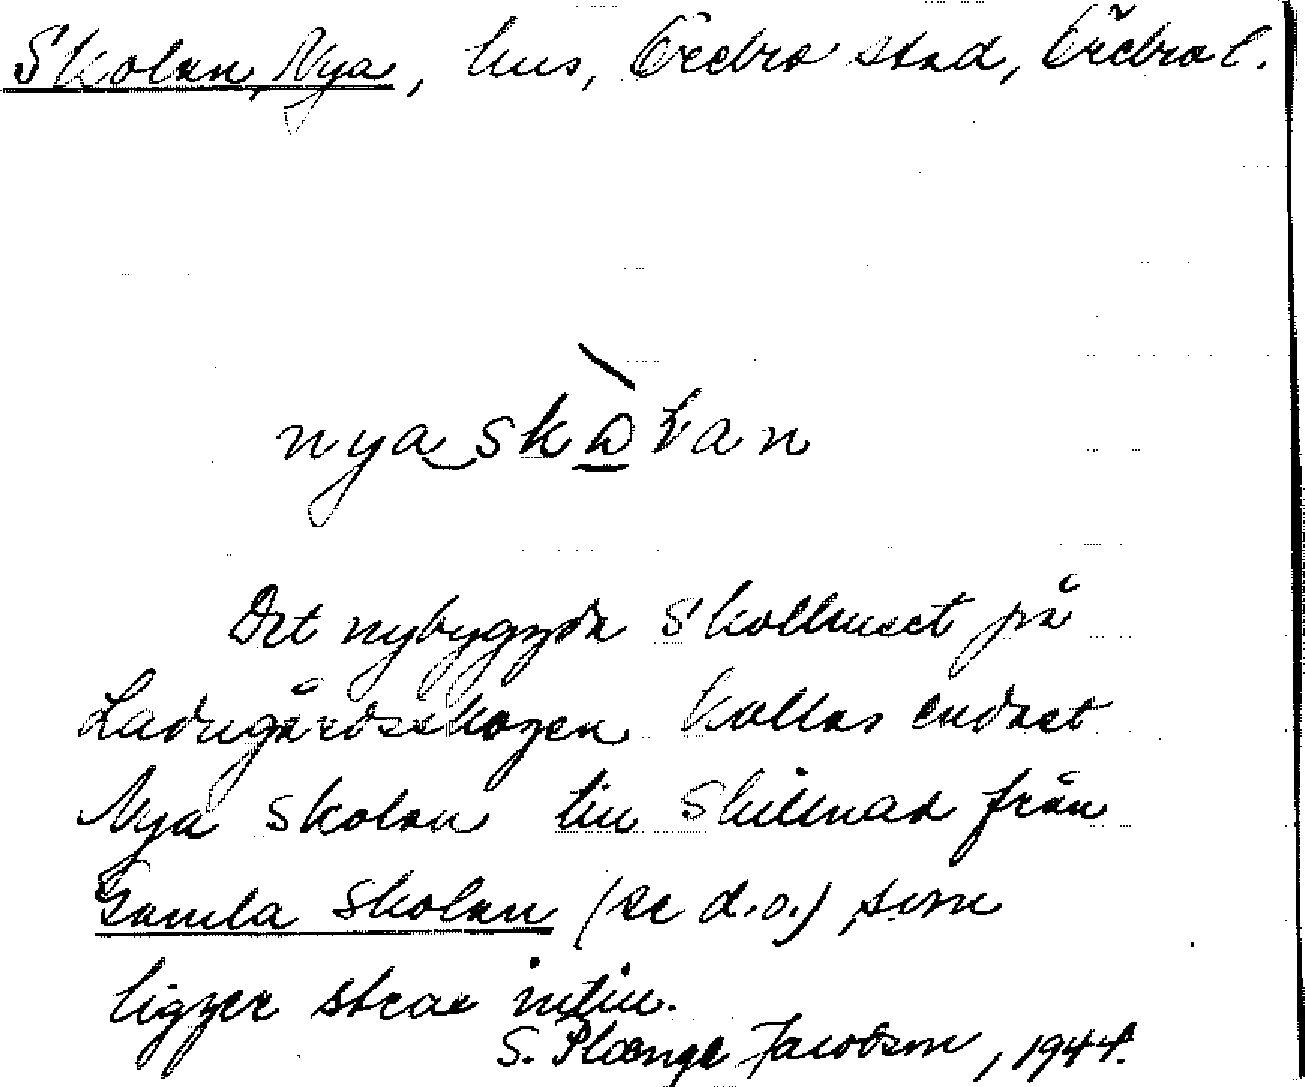 Skolan, Nya, hus, Örebro stad, Örebro l.
nya skolan
Det nybyggda Skolhuset på
Ladugårdsskogen kallas endast
Nya skolan till skillnad från
Gamla Skolan (se d.o.) som
ligger strax intill.
S. Plænge Jacobson, 1944.